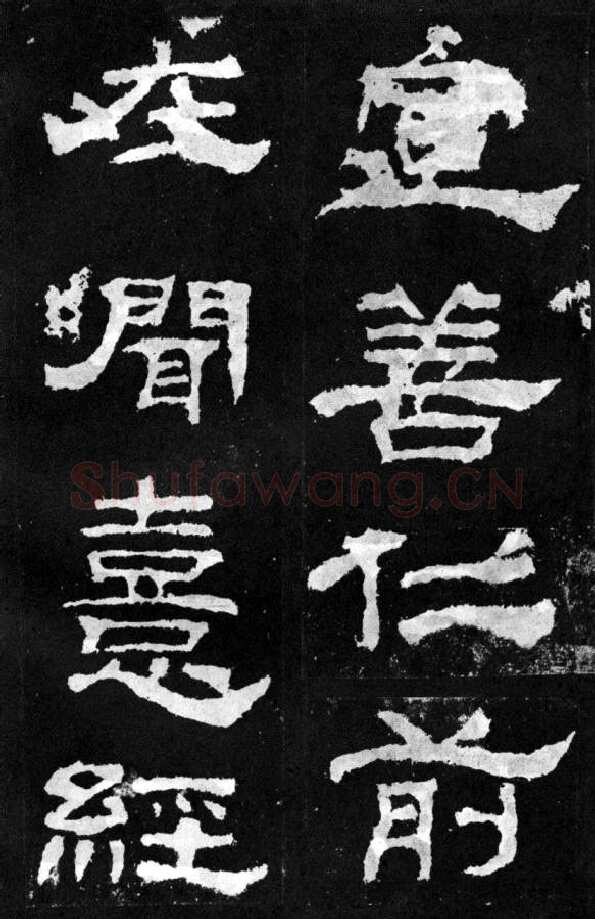 宣善仁前
在聞憙經
Shufawang.CN